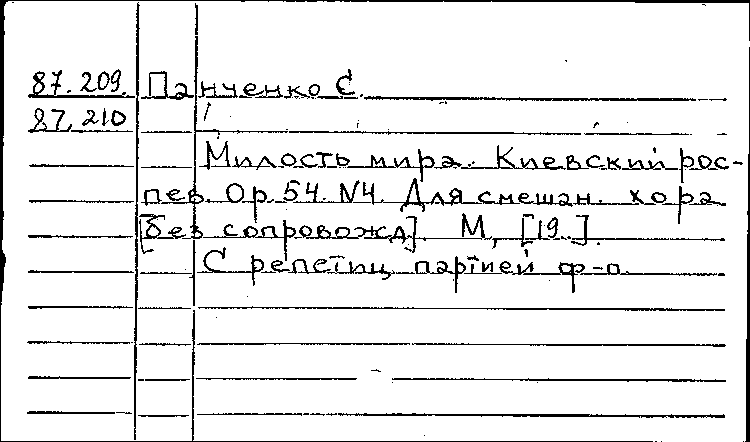 87.209. Панченко С.
87.210
Милость мира. Киевский рос-
пев. Op. 54. N4. Для смешан. хора
[без сопровожд]. М., [19..].
С репетиц партией ф-п.